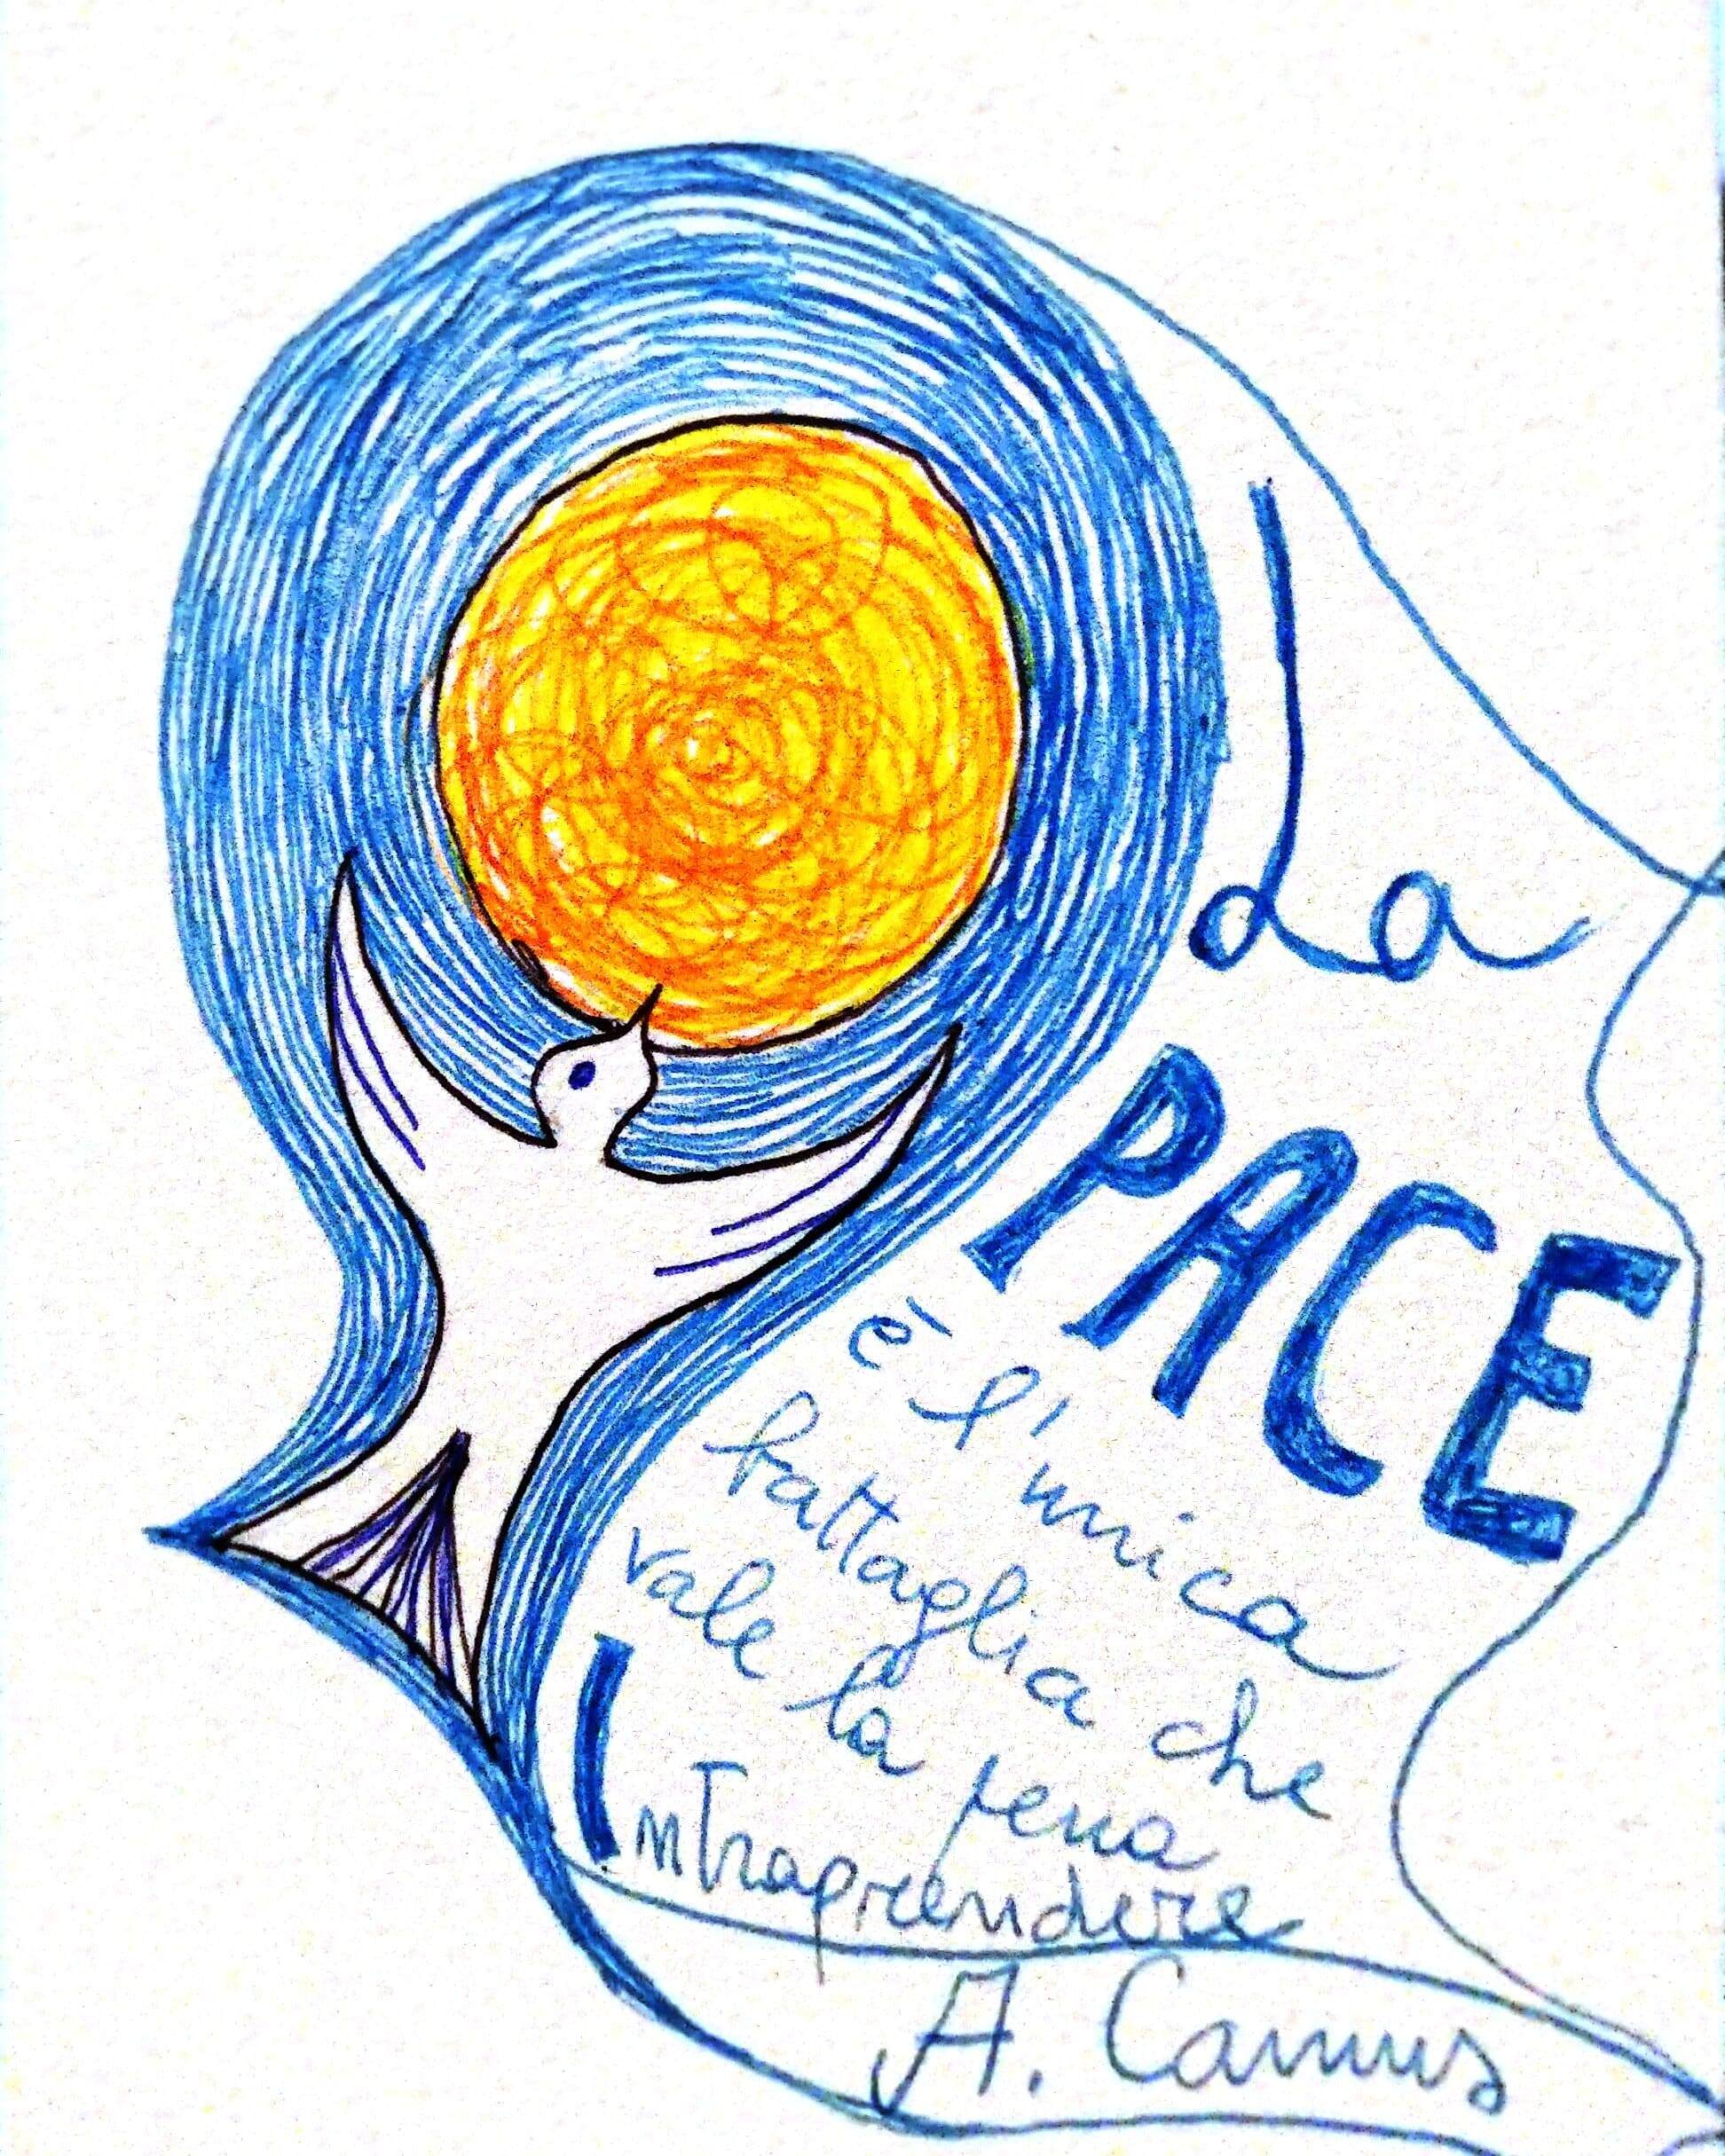 La
PACE
è l'unica
battaglia che
vale la pena
Intraprendere
A. Camus